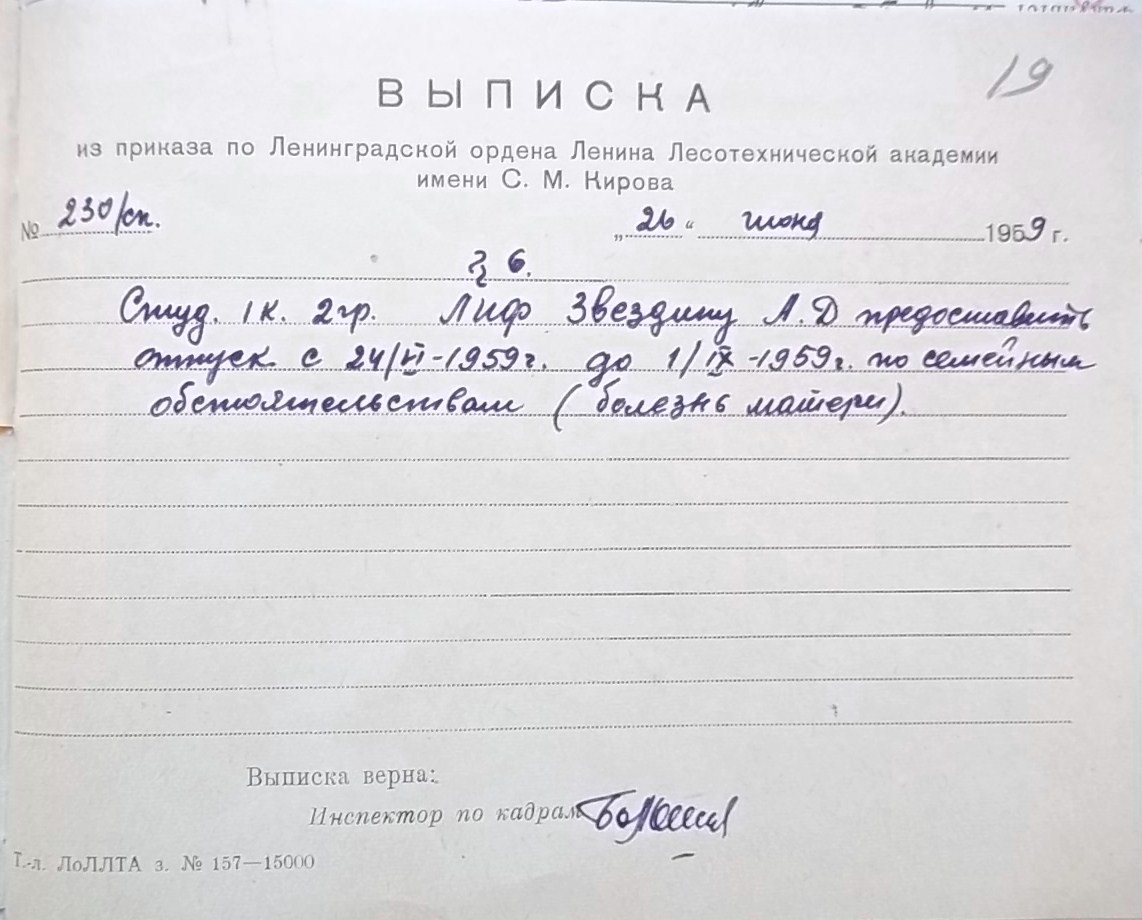 19
ВЫПИСКА
из приказа по Ленинградской ордена Ленина Лесотехнической академии
имени С. М. Кирова
№ 230/сп. „26“ июня 1959 г.
§ 6.
Студ. 1 к. 2 гр. ЛИФ Звездину А.Д предоставить
отпуск с 24/VI-1959г. до 1/IX-1959г. по семейным
обстоятельствам (болезнь матери).
Выписка верна:
Инспектор по кадрам
Т.-л. ЛоЛЛТА з. № 157—15000